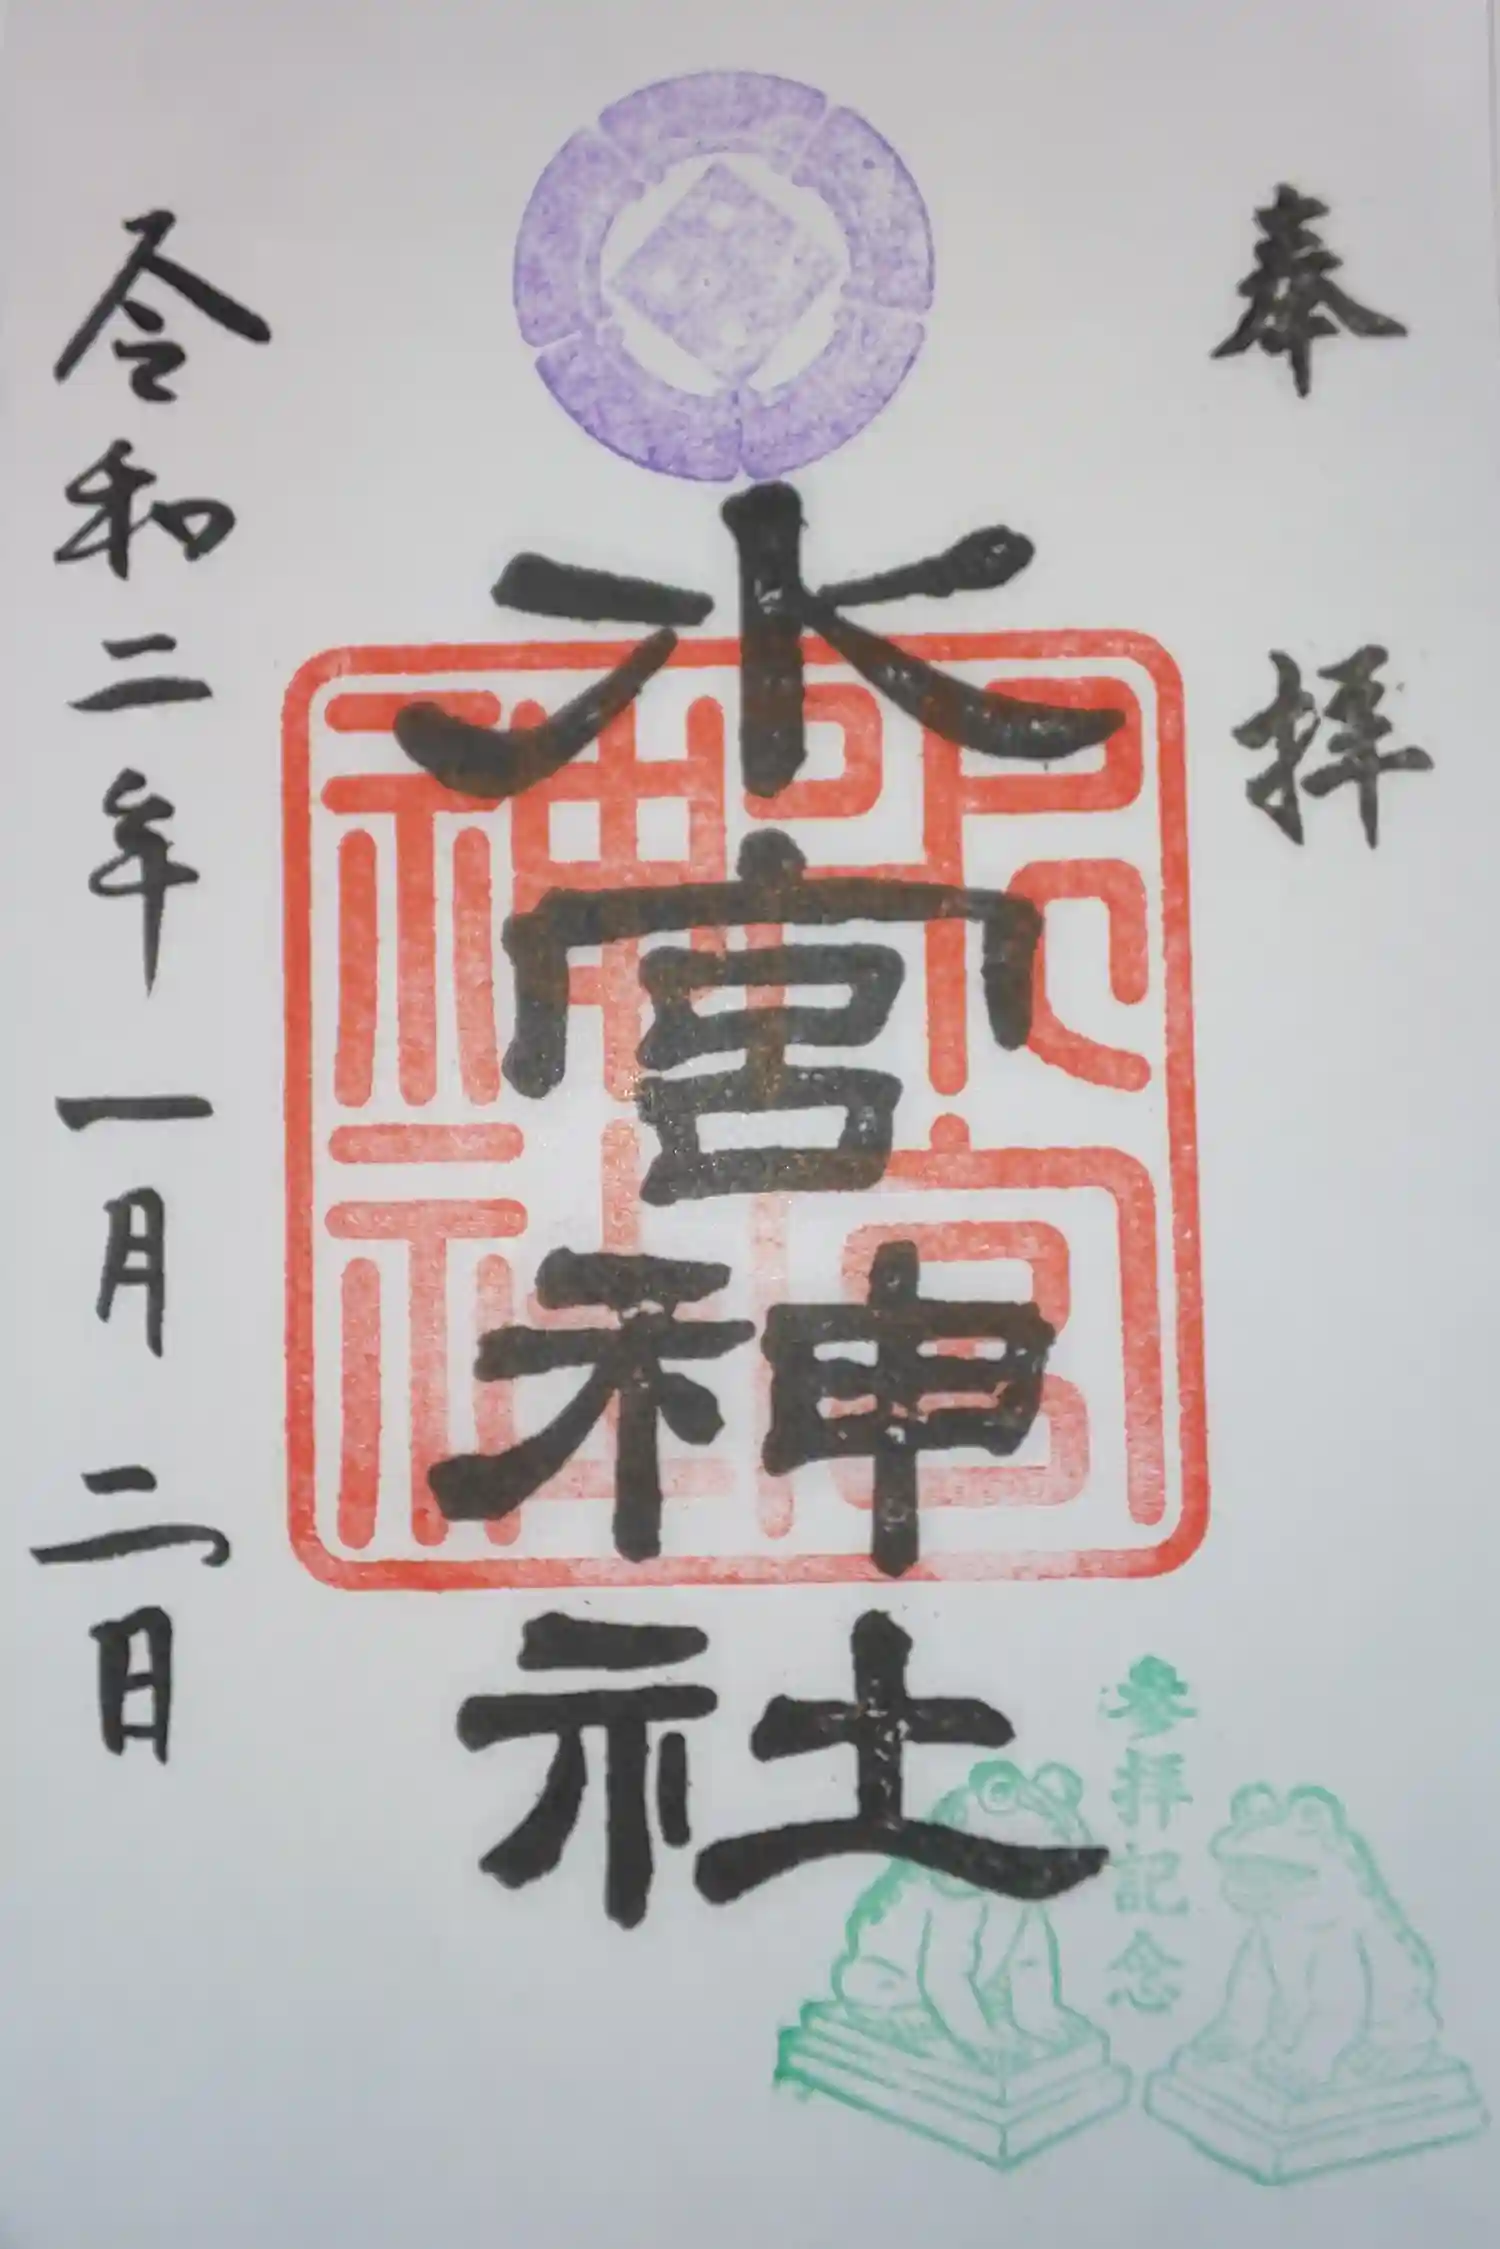 奉拝
水宮神社
参拝記念
令和二年一月二日